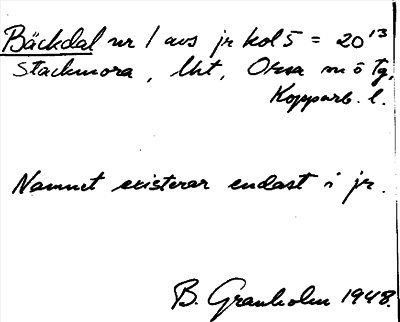 Bäckdal nr 1 avs jr kol 5 = 20¹³
Stackmora, lht, Orsa sn ö tg,
Kopparb. l.
Namnet existerar endast i jr.
B. Granholm 1948.